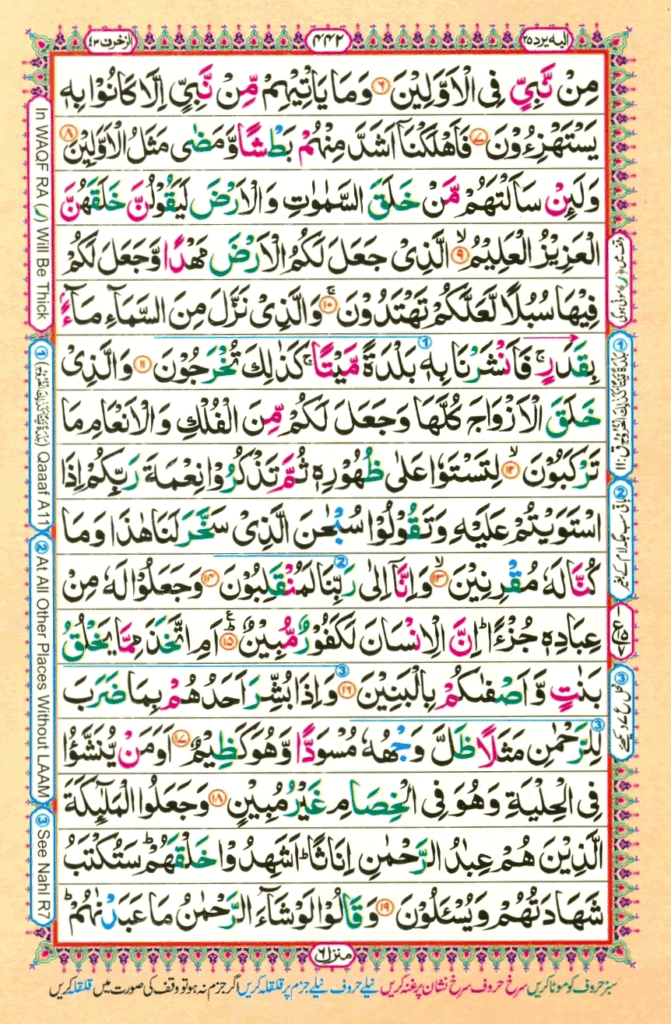 اليه يرد ٢٥
٤٤٢
الزخرف ٤٣
مِنْ نَّبِيٍّ فِى الْاَوَّلِيْنَ ۝٦ وَمَا يَاْتِيْهِمْ مِّنْ نَّبِيٍّ اِلَّا كَانُوْا بِهٖ
يَسْتَهْزِءُوْنَ ۝٧ فَاَهْلَكْنَاۤ اَشَدَّ مِنْهُمْ بَطْشًا وَّمَضٰى مَثَلُ الْاَوَّلِيْنَ ۝٨
وَلَئِنْ سَاَلْتَهُمْ مَّنْ خَلَقَ السَّمٰوٰتِ وَالْاَرْضَ لَيَقُوْلُنَّ خَلَقَهُنَّ
الْعَزِيْزُ الْعَلِيْمُ ۝٩ۙ الَّذِىْ جَعَلَ لَكُمُ الْاَرْضَ مَهْدًا وَّجَعَلَ لَكُمْ
فِيْهَا سُبُلًا لَّعَلَّكُمْ تَهْتَدُوْنَ ۝١٠ۚ وَالَّذِىْ نَزَّلَ مِنَ السَّمَآءِ مَآءًۢ
بِقَدَرٍۚ فَاَنْشَرْنَا بِهٖ بَلْدَةً مَّيْتًاۚ كَذٰلِكَ تُخْرَجُوْنَ ۝١١ وَالَّذِىْ
خَلَقَ الْاَزْوَاجَ كُلَّهَا وَجَعَلَ لَكُمْ مِّنَ الْفُلْكِ وَالْاَنْعَامِ مَا
تَرْكَبُوْنَ ۝١٢ۙ لِتَسْتَوٗا عَلٰى ظُهُوْرِهٖ ثُمَّ تَذْكُرُوْا نِعْمَةَ رَبِّكُمْ اِذَا
اسْتَوَيْتُمْ عَلَيْهِ وَتَقُوْلُوْا سُبْحٰنَ الَّذِىْ سَخَّرَ لَنَا هٰذَا وَمَا
كُنَّا لَهٗ مُقْرِنِيْنَ ۝١٣ۙ وَاِنَّاۤ اِلٰى رَبِّنَا لَمُنْقَلِبُوْنَ ۝١٤ وَجَعَلُوْا لَهٗ مِنْ
عِبَادِهٖ جُزْءًاؕ اِنَّ الْاِنْسَانَ لَكَفُوْرٌ مُّبِيْنٌ ۝١٥ؕ اَمِ اتَّخَذَ مِمَّا يَخْلُقُ
بَنٰتٍ وَّاَصْفٰىكُمْ بِالْبَنِيْنَ ۝١٦ وَاِذَا بُشِّرَ اَحَدُهُمْ بِمَا ضَرَبَ
لِلرَّحْمٰنِ مَثَلًا ظَلَّ وَجْهُهٗ مُسْوَدًّا وَّهُوَ كَظِيْمٌ ۝١٧ اَوَمَنْ يُّنَشَّؤُا
فِى الْحِلْيَةِ وَهُوَ فِى الْخِصَامِ غَيْرُ مُبِيْنٍ ۝١٨ وَجَعَلُوا الْمَلٰٓئِكَةَ
الَّذِيْنَ هُمْ عِبٰدُ الرَّحْمٰنِ اِنَاثًاؕ اَشَهِدُوْا خَلْقَهُمْؕ سَتُكْتَبُ
شَهَادَتُهُمْ وَيُسْئَلُوْنَ ۝١٩ وَقَالُوْا لَوْ شَآءَ الرَّحْمٰنُ مَا عَبَدْنٰهُمْؕ
منزل ٦
سبز حروف کو موٹا کریں سرخ حروف سرخ نشان پر غنہ کریں نیلے حروف نیلے جزم پر قلقلہ کریں اگر جزم نہ ہو تو وقف کی صورت میں قلقلہ کریں
In WAQF RA (ر) Will Be Thick
① (بَلْدَةً مَّيْتًا كَذٰلِكَ الْخُرُوْجُ) Qaaaf A11
② At All Other Places Without LAAM
③ See Nahl R7